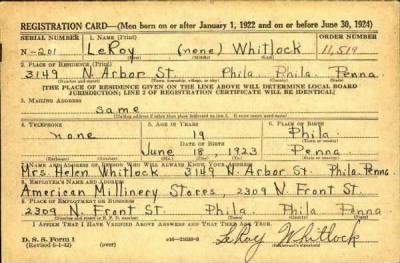 REGISTRATION CARD—(Men born on or after January 1, 1922 and on or before June 30, 1924)
SERIAL NUMBER 1. NAME (Print) ORDER NUMBER
N-201 LeRoy (none) Whitlock 11,519
2. PLACE OF RESIDENCE (Print)
3149 N. Arbor St. Phila. Phila. Penna.
(Number and street) (Town, township, village, or city) (County) (State)
[THE PLACE OF RESIDENCE GIVEN ON THE LINE ABOVE WILL DETERMINE LOCAL BOARD
JURISDICTION; LINE 2 OF REGISTRATION CERTIFICATE WILL BE IDENTICAL]
3. MAILING ADDRESS
same
[Mailing address if other than place indicated on line 2. If same insert word same]
4. TELEPHONE 5. AGE IN YEARS 6. PLACE OF BIRTH
none 19 Phila.
DATE OF BIRTH (Town or county)
June 18, 1923 Penna.
(Exchange) (Number) (Mo.) (Day) (Yr.) (State or country)
7. NAME AND ADDRESS OF PERSON WHO WILL ALWAYS KNOW YOUR ADDRESS
Mrs. Helen Whitlock 3149 N. Arbor St. Phila. Penna.
8. EMPLOYER'S NAME AND ADDRESS
American Millinery Stores, 2309 N. Front St.
9. PLACE OF EMPLOYMENT OR BUSINESS
2309 N. Front St. Phila. Phila Penna.
(Number and street or R. F. D. number) (Town) (County) (State)
I AFFIRM THAT I HAVE VERIFIED ABOVE ANSWERS AND THAT THEY ARE TRUE.
D. S. S. Form 1
(Revised 6-1-42) LeRoy Whitlock
(Registrant's signature)